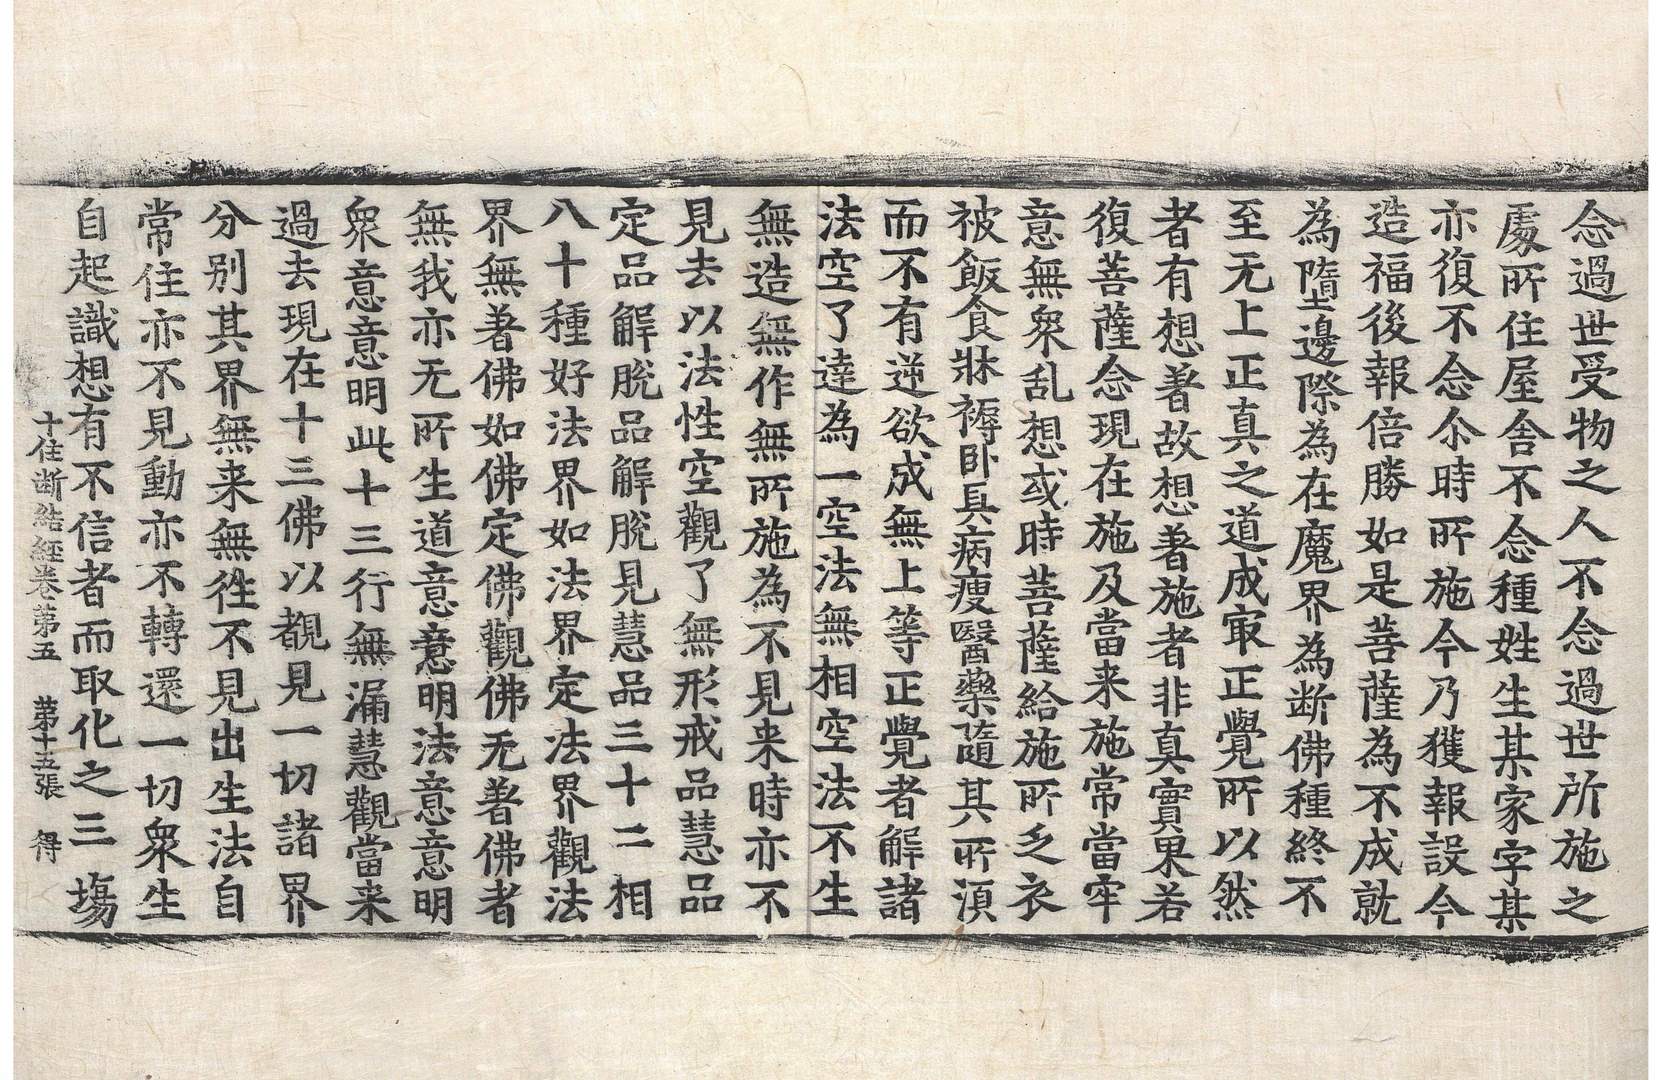 念過世受物之人不念過世所施之
處所住屋舍不念種姓生某家字某
亦復不念尒時所施今乃獲報設今
造福後報倍勝如是菩薩為不成就
為墮邊際為在魔界為断佛種終不
至无上正真之道成㝡正覺所以然
者有想著故想著施者非真實果若
復菩薩念現在施及當来施常當牢
意無衆乱想或時菩薩給施所乏衣
被飯食牀褥卧具病瘦醫藥隨其所湏
而不有逆欲成無上等正覺者解諸
法空了達為一空法無相空法不生
無造無作無所施為不見来時亦不
見去以法性空觀了無形戒品慧品
定品解脫品解脫見慧品三十二相
八十種好法界如法界定法界觀法
界無著佛如佛定佛觀佛无著佛者
無我亦无所生道意意明法意意明
衆意意明此十三行無漏慧觀當来
過去現在十三佛以觀見一切諸界
分別其界無来無徃不見出生法自
常住亦不見動亦不轉還一切衆生
自起識想有不信者而取化之三塲
十住断結經卷第五 第十五張 得